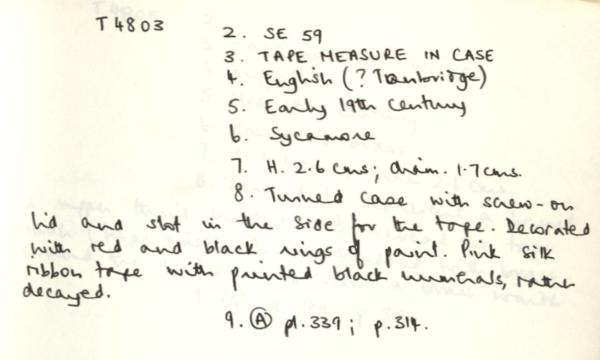 T4803
2. SE 59
3. TAPE MEASURE IN CASE
4. English (? Tonbridge)
5. Early 19th Century
6. Sycamore
7. H. 2.6 cms; diam. 1.7 cms.
8. Turned case with screw-on
lid and slot in the side for the tape. Decorated
with red and black rings of paint. Pink silk
ribbon tape with printed black numerals, rather
decayed.
9. Ⓐ pl. 339; p. 314.